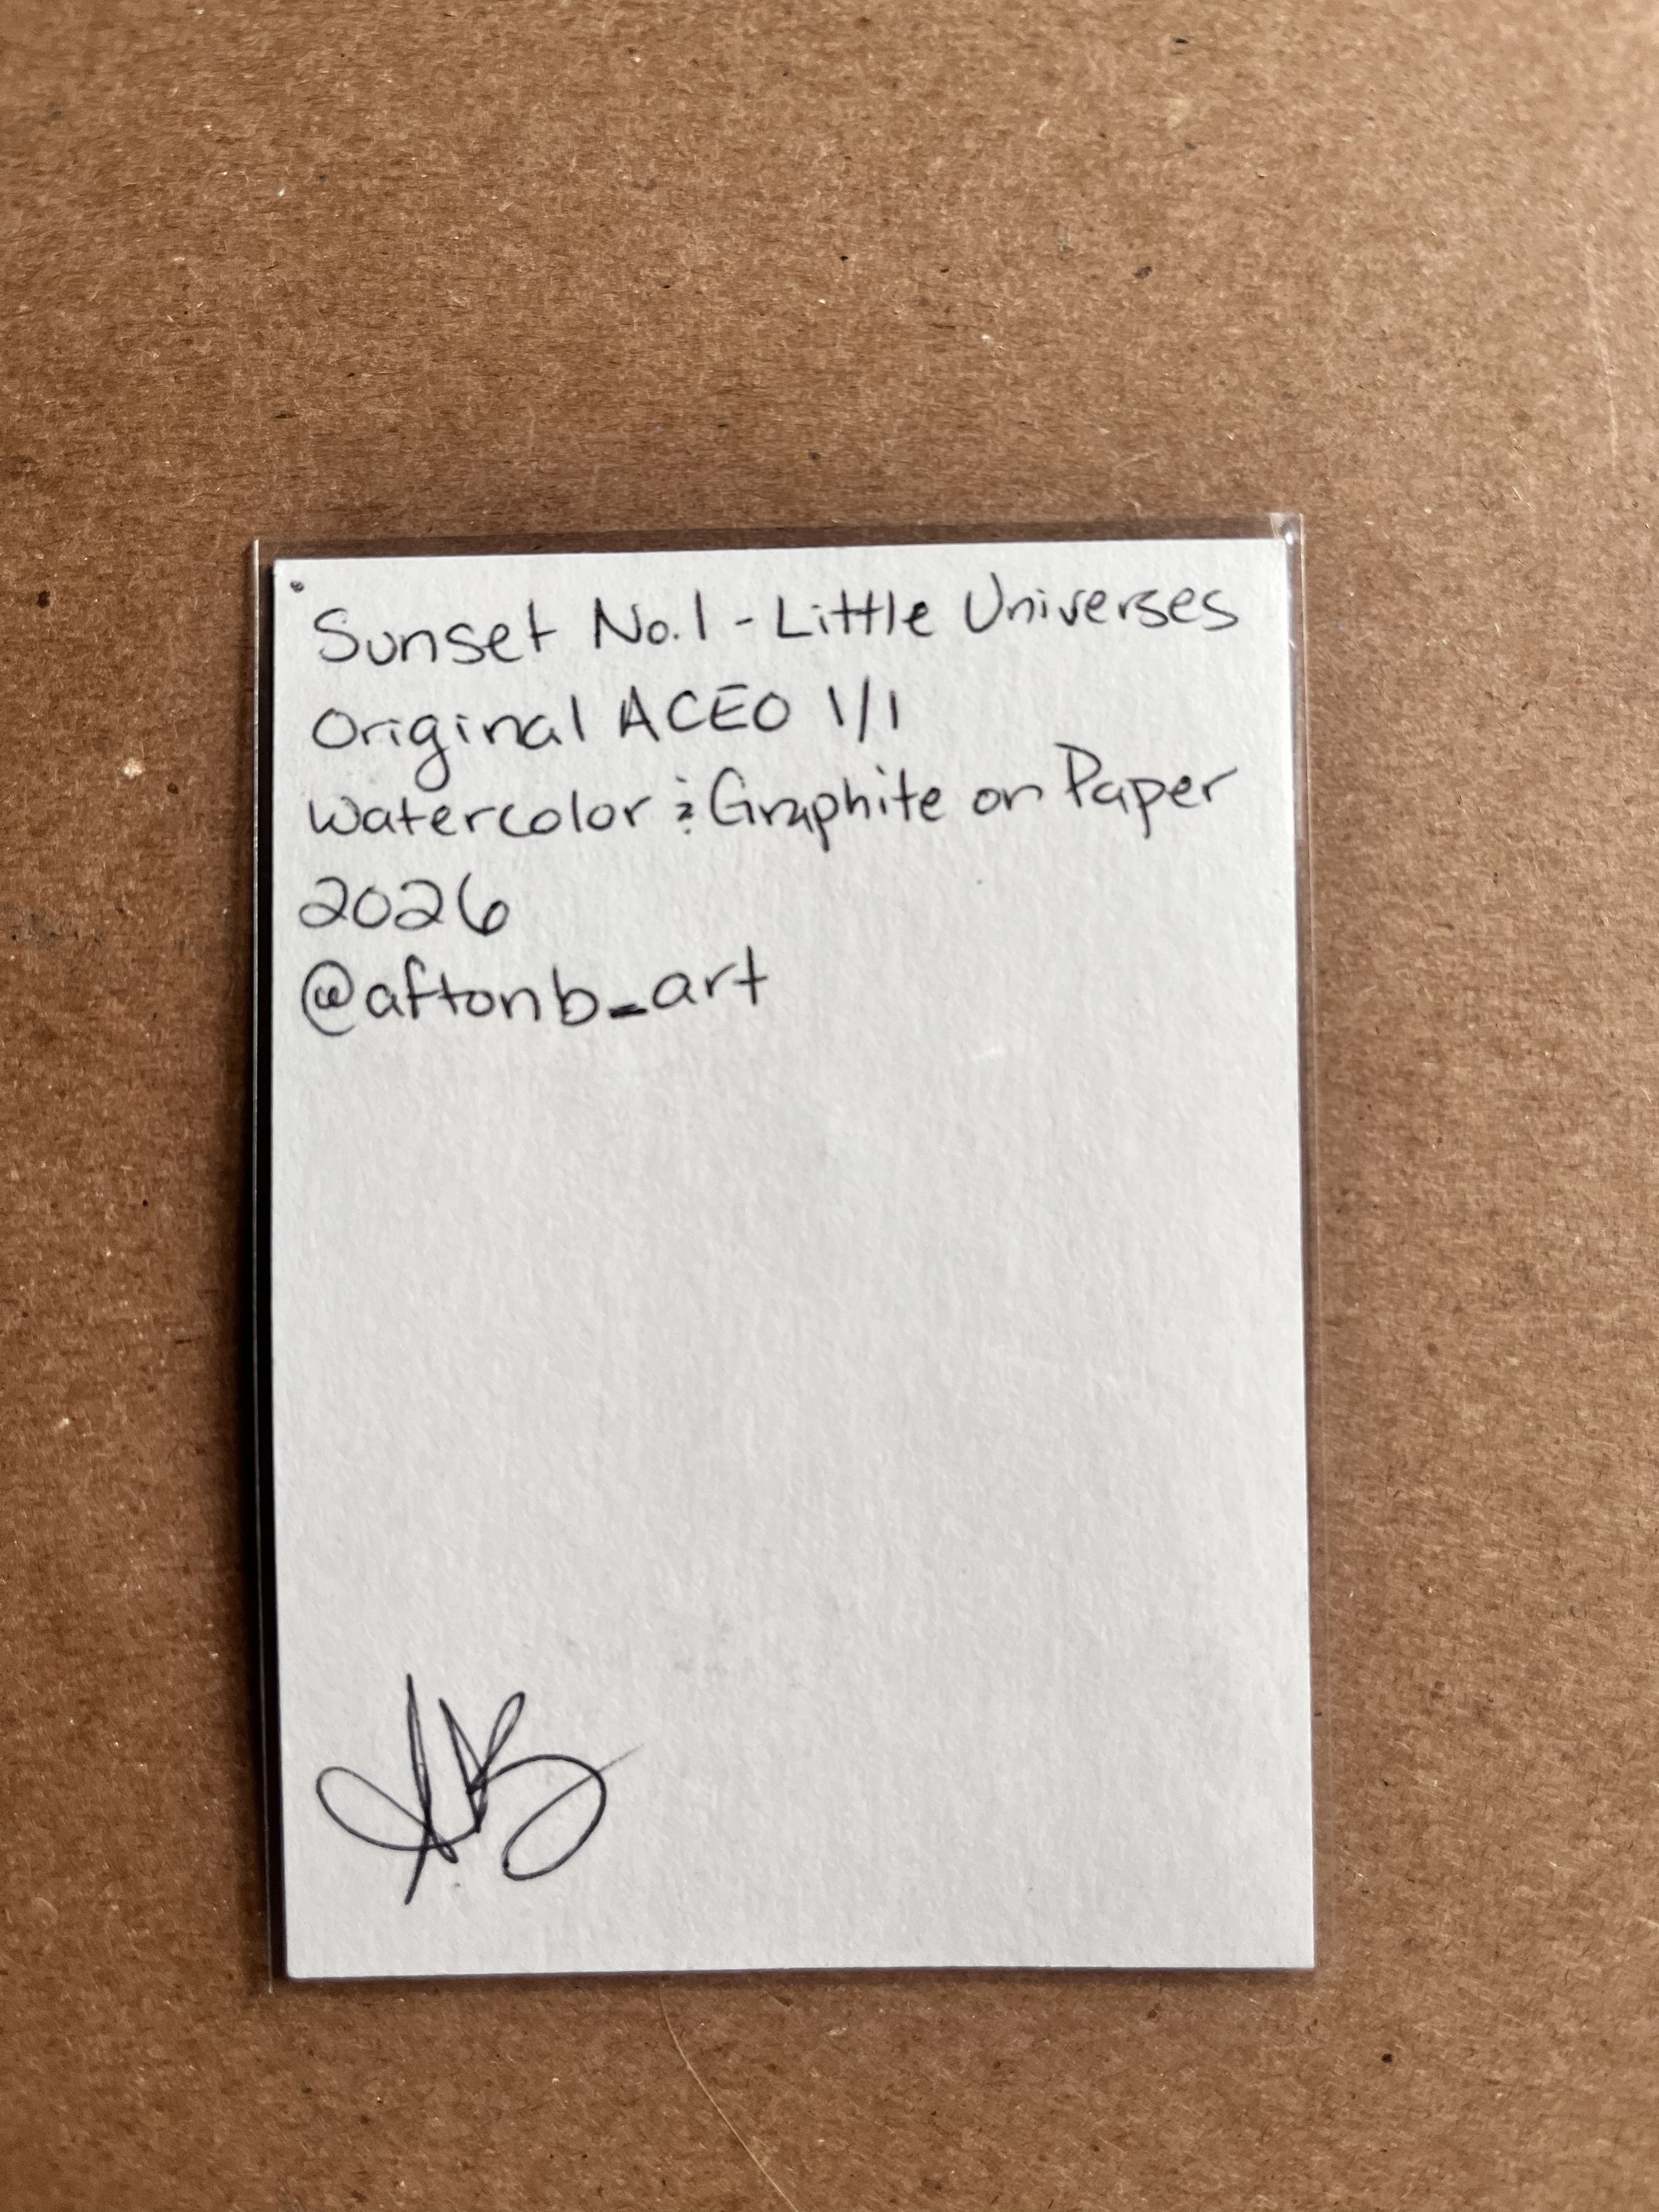 Sunset No.1 - Little Universes
Original ACEO 1/1
Watercolor & Graphite on Paper
2026
@aftonb_art
AB